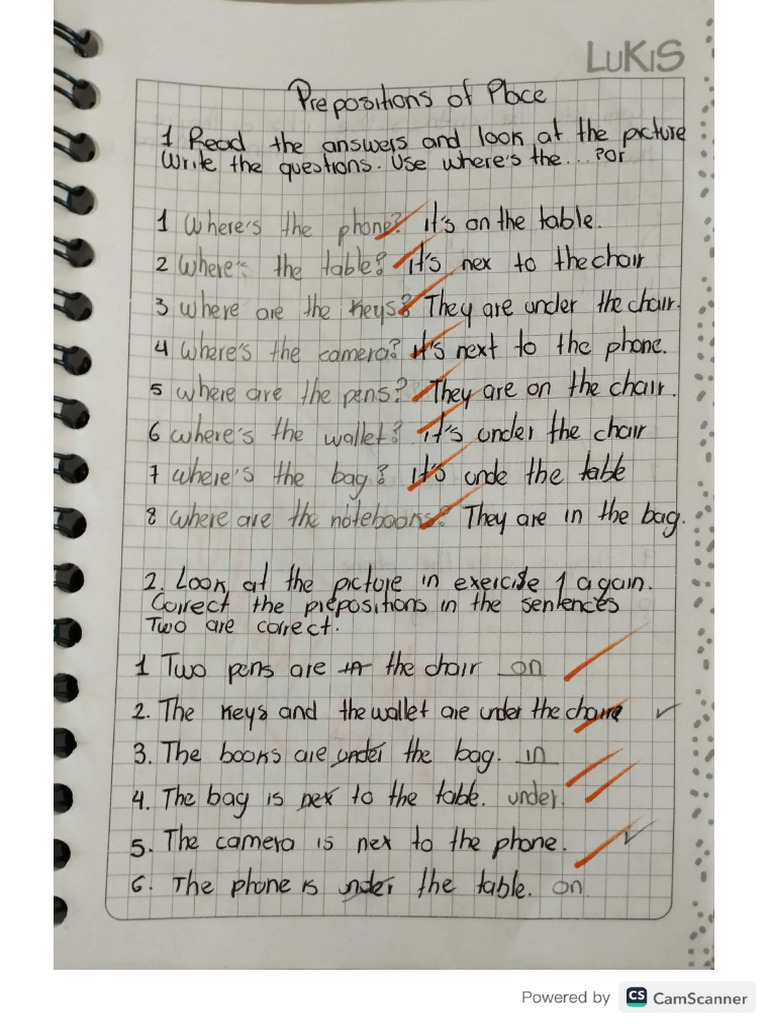 LUKIS
Prepositions of Place
1 Read the answers and look at the picture
Write the questions. Use where's the... ? or
1 Where's the phone? it's on the table.
2 Where's the table? it's nex to the chair
3 where are the keys? They are under the chair.
4 Where's the camera? it's next to the phone.
5 where are the pens? They are on the chair.
6 where's the wallet? it's under the chair
7 where's the bag? it's unde the table
8 where are the notebooks? They are in the bag.
2. Look at the picture in exercise 1 again.
Correct the prepositions in the sentences
Two are correct.
1 Two pens are in the chair on
2. The keys and the wallet are under the chaire ✓
3. The books are under the bag. in
4. The bag is nex to the table. under.
5. The camera is nex to the phone. ✓
6. The phone is under the table. on
Powered by CS CamScanner